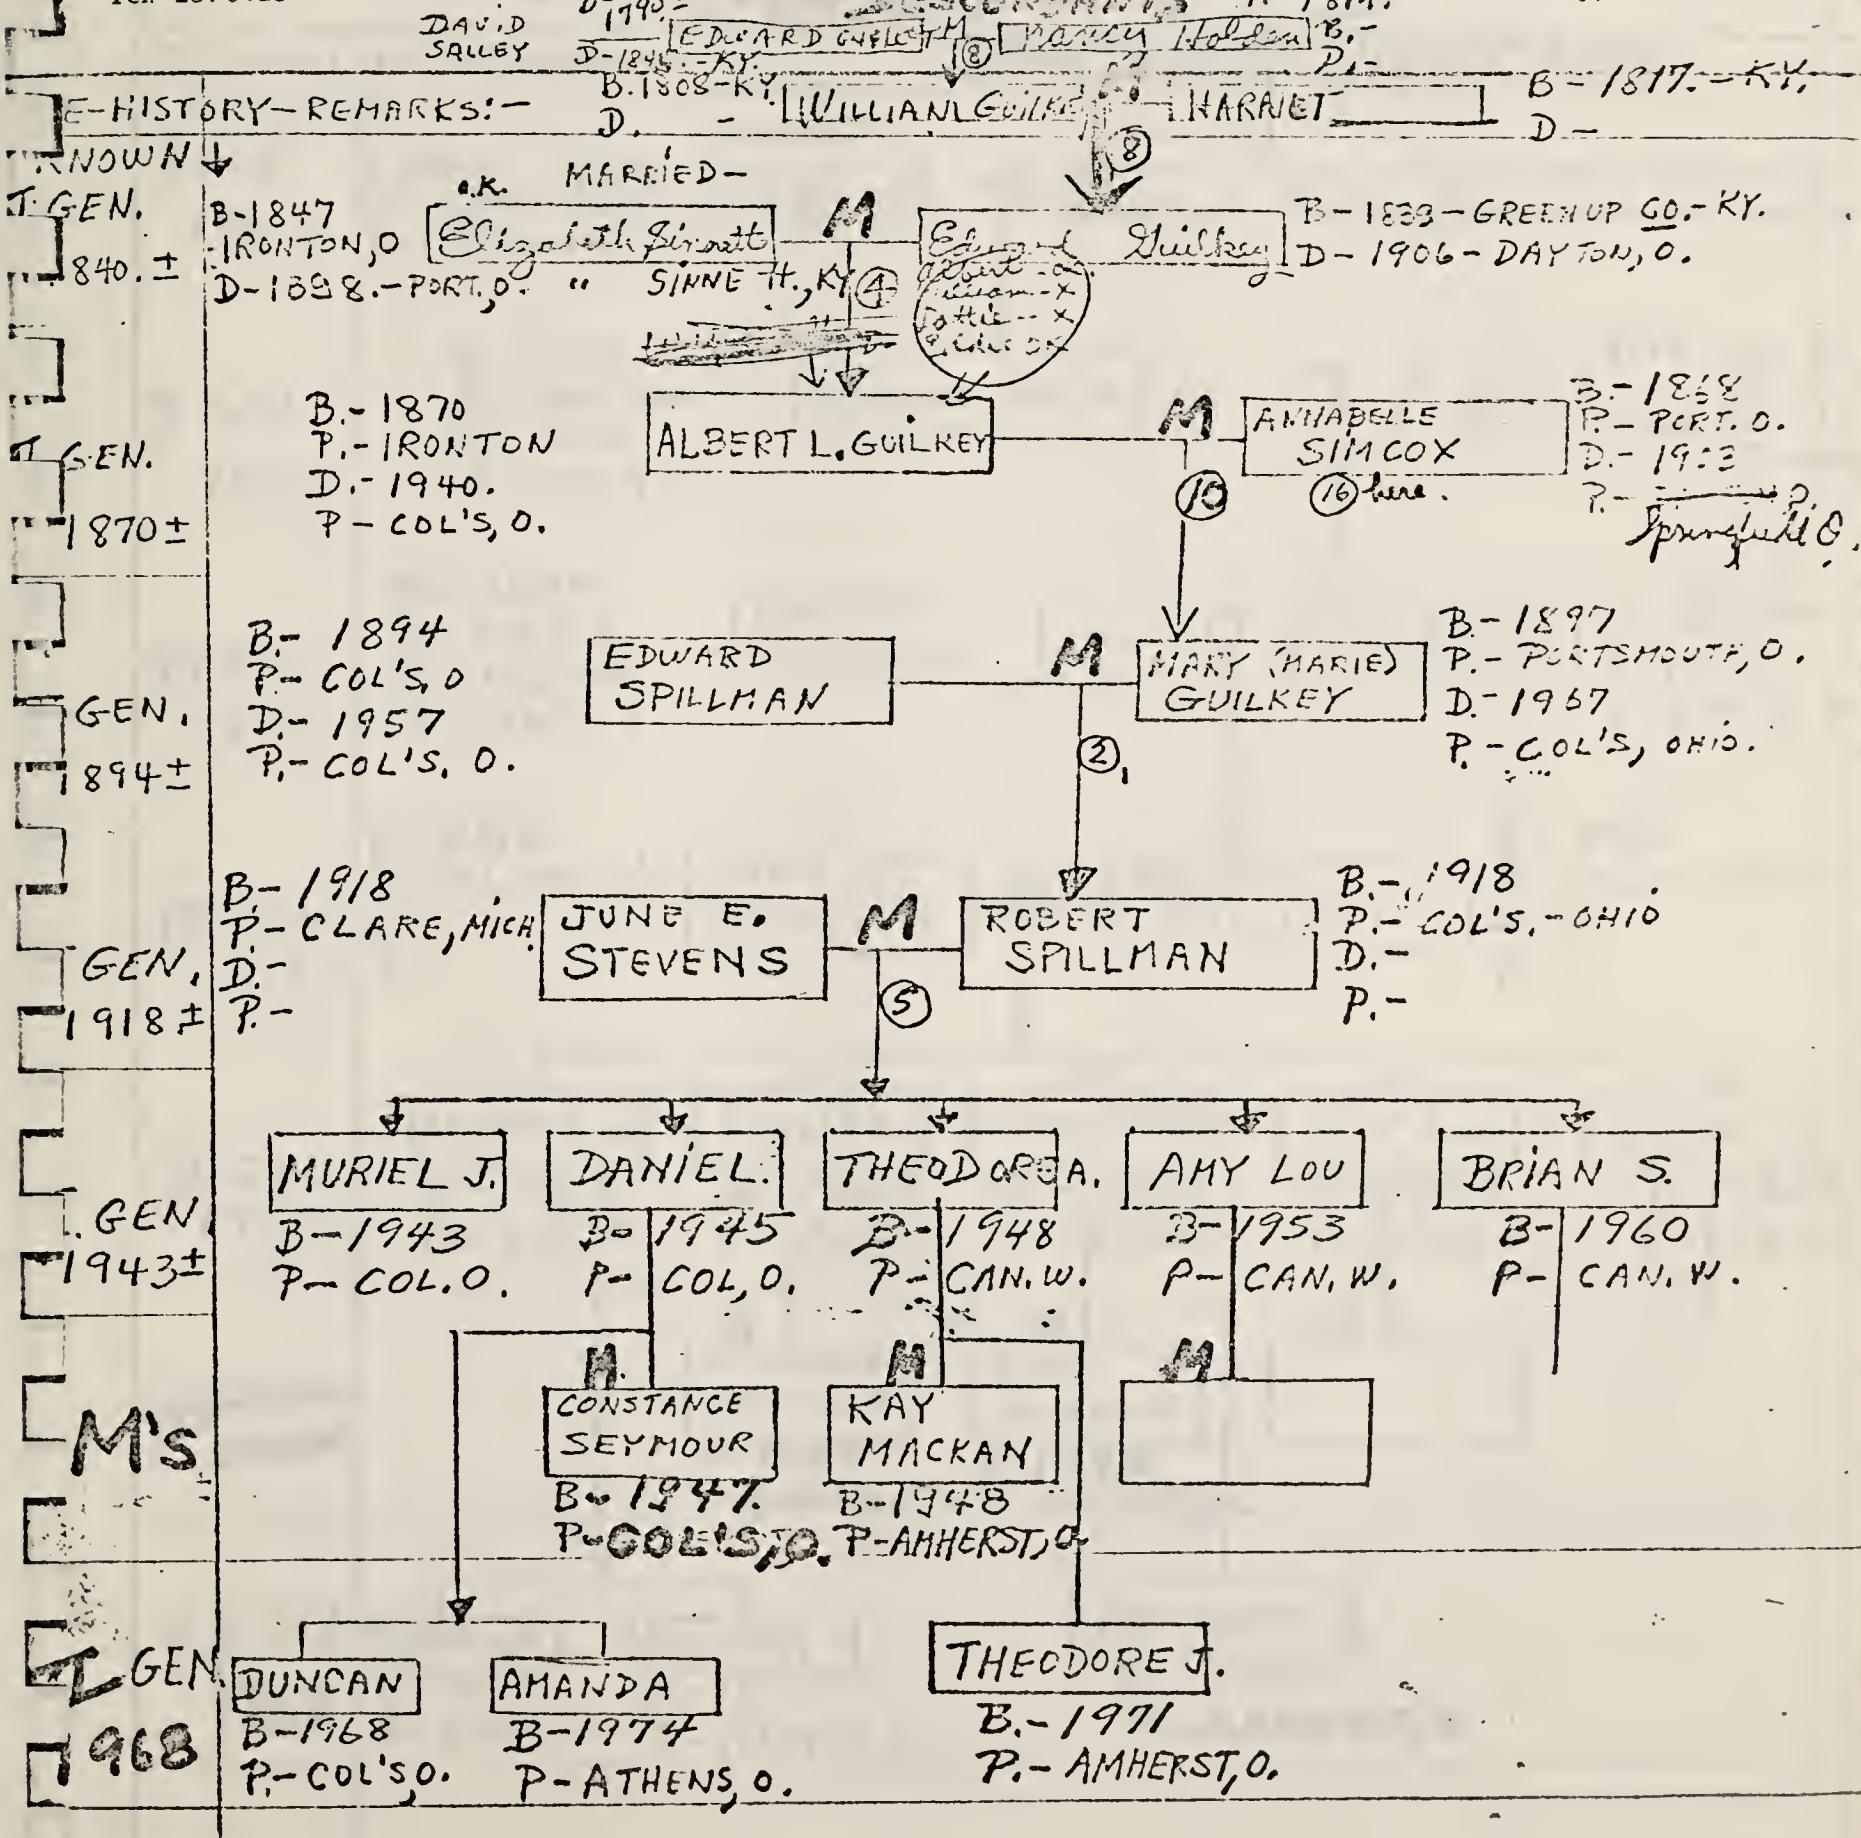 DAVID
SALLEY
1790-
D-1845-KY.
EDWARD
M
Nancy Holden
B.-
D.-
⑧
E-HISTORY-REMARKS:-
B.1808-KY.
D. -
WILLIAM GUILKE
M
HARRIET
B-1817.-KY.
D-
⑧
NOWN
GEN.
1840.±
B-1847
IRONTON, O
D-1898.-PORT., O.
O.K. MARRIED-
Elizabeth Sinnett
" SINNE TT., KY
M
④
Edward Guilkey
Albert - O.
William -- X
Dottie -- X
B-1839-GREENUP CO.-KY.
D-1906-DAYTON, O.
GEN.
1870±
B.-1870
P.-IRONTON
D.-1940.
P-COL'S, O.
ALBERT L. GUILKEY
M
⑩
ANNABELLE
SIMCOX
⑯ here.
B.-1868
P.-PORT. O.
D.-
P.-
Springfield O.
GEN.
1894±
B.-1894
P-COL'S, O
D.-1957
P.-COL'S, O.
EDWARD
SPILLMAN
M
②
MARY (MARIE)
GUILKEY
B-1897
P.-PORTSMOUTH, O.
D.-1967
P.-COL'S, OHIO.
GEN.
1918±
B.-1918
P.-CLARE, MICH
D.-
P.-
JUNE E.
STEVENS
M
⑤
ROBERT
SPILLMAN
B.-1918
P.-COL'S.-OHIO
D.-
P.-
GEN.
1943±
MURIEL J.
B-1943
P-COL. O.
DANIEL.
B-1945
P-COL, O.
THEODORE A.
B-1948
P-CAN. W.
AMY LOU
B-1953
P-CAN. W.
BRIAN S.
B-1960
P-CAN. W.
M's
M.
CONSTANCE
SEYMOUR
B-1947.
P-COL'S, O.
M
KAY
MACKAN
B-1948
P-AMHERST, O
M
GEN
1968
DUNCAN
B-1968
P.-COL'S, O.
AMANDA
B-1974
P-ATHENS, O.
THEODORE J.
B.-1971
P.-AMHERST, O.